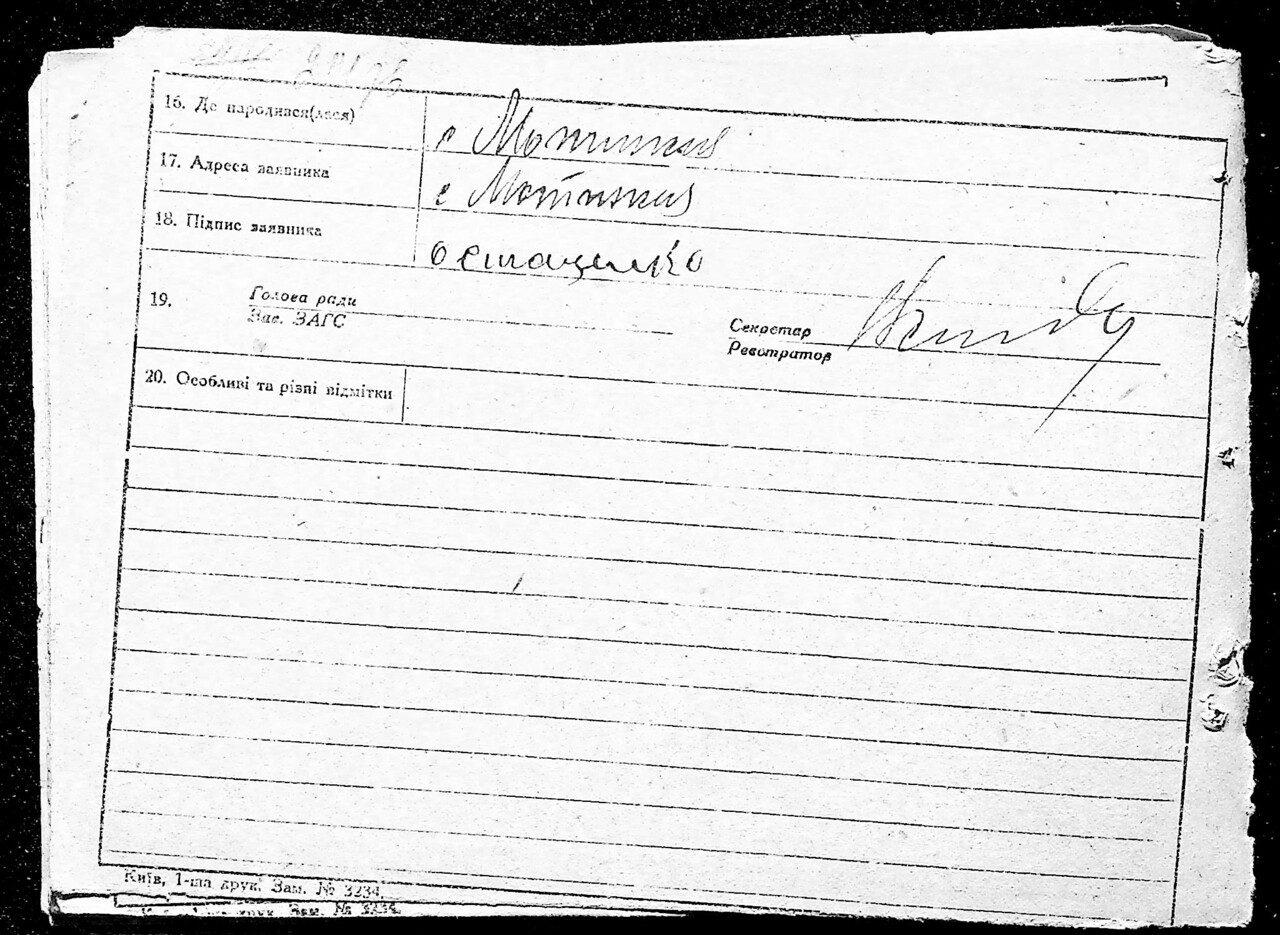 16. Де народився(лася) с Мотижин
17. Адреса заявника с Мотижин
18. Підпис заявника Осташенко
19. Голова ради
Зав. ЗАГС
Секретар
Реєстратор
20. Особливі та різні відмітки
Київ, 1-ша друк. Зам. № 3234.
друк. Зам. № 3234.